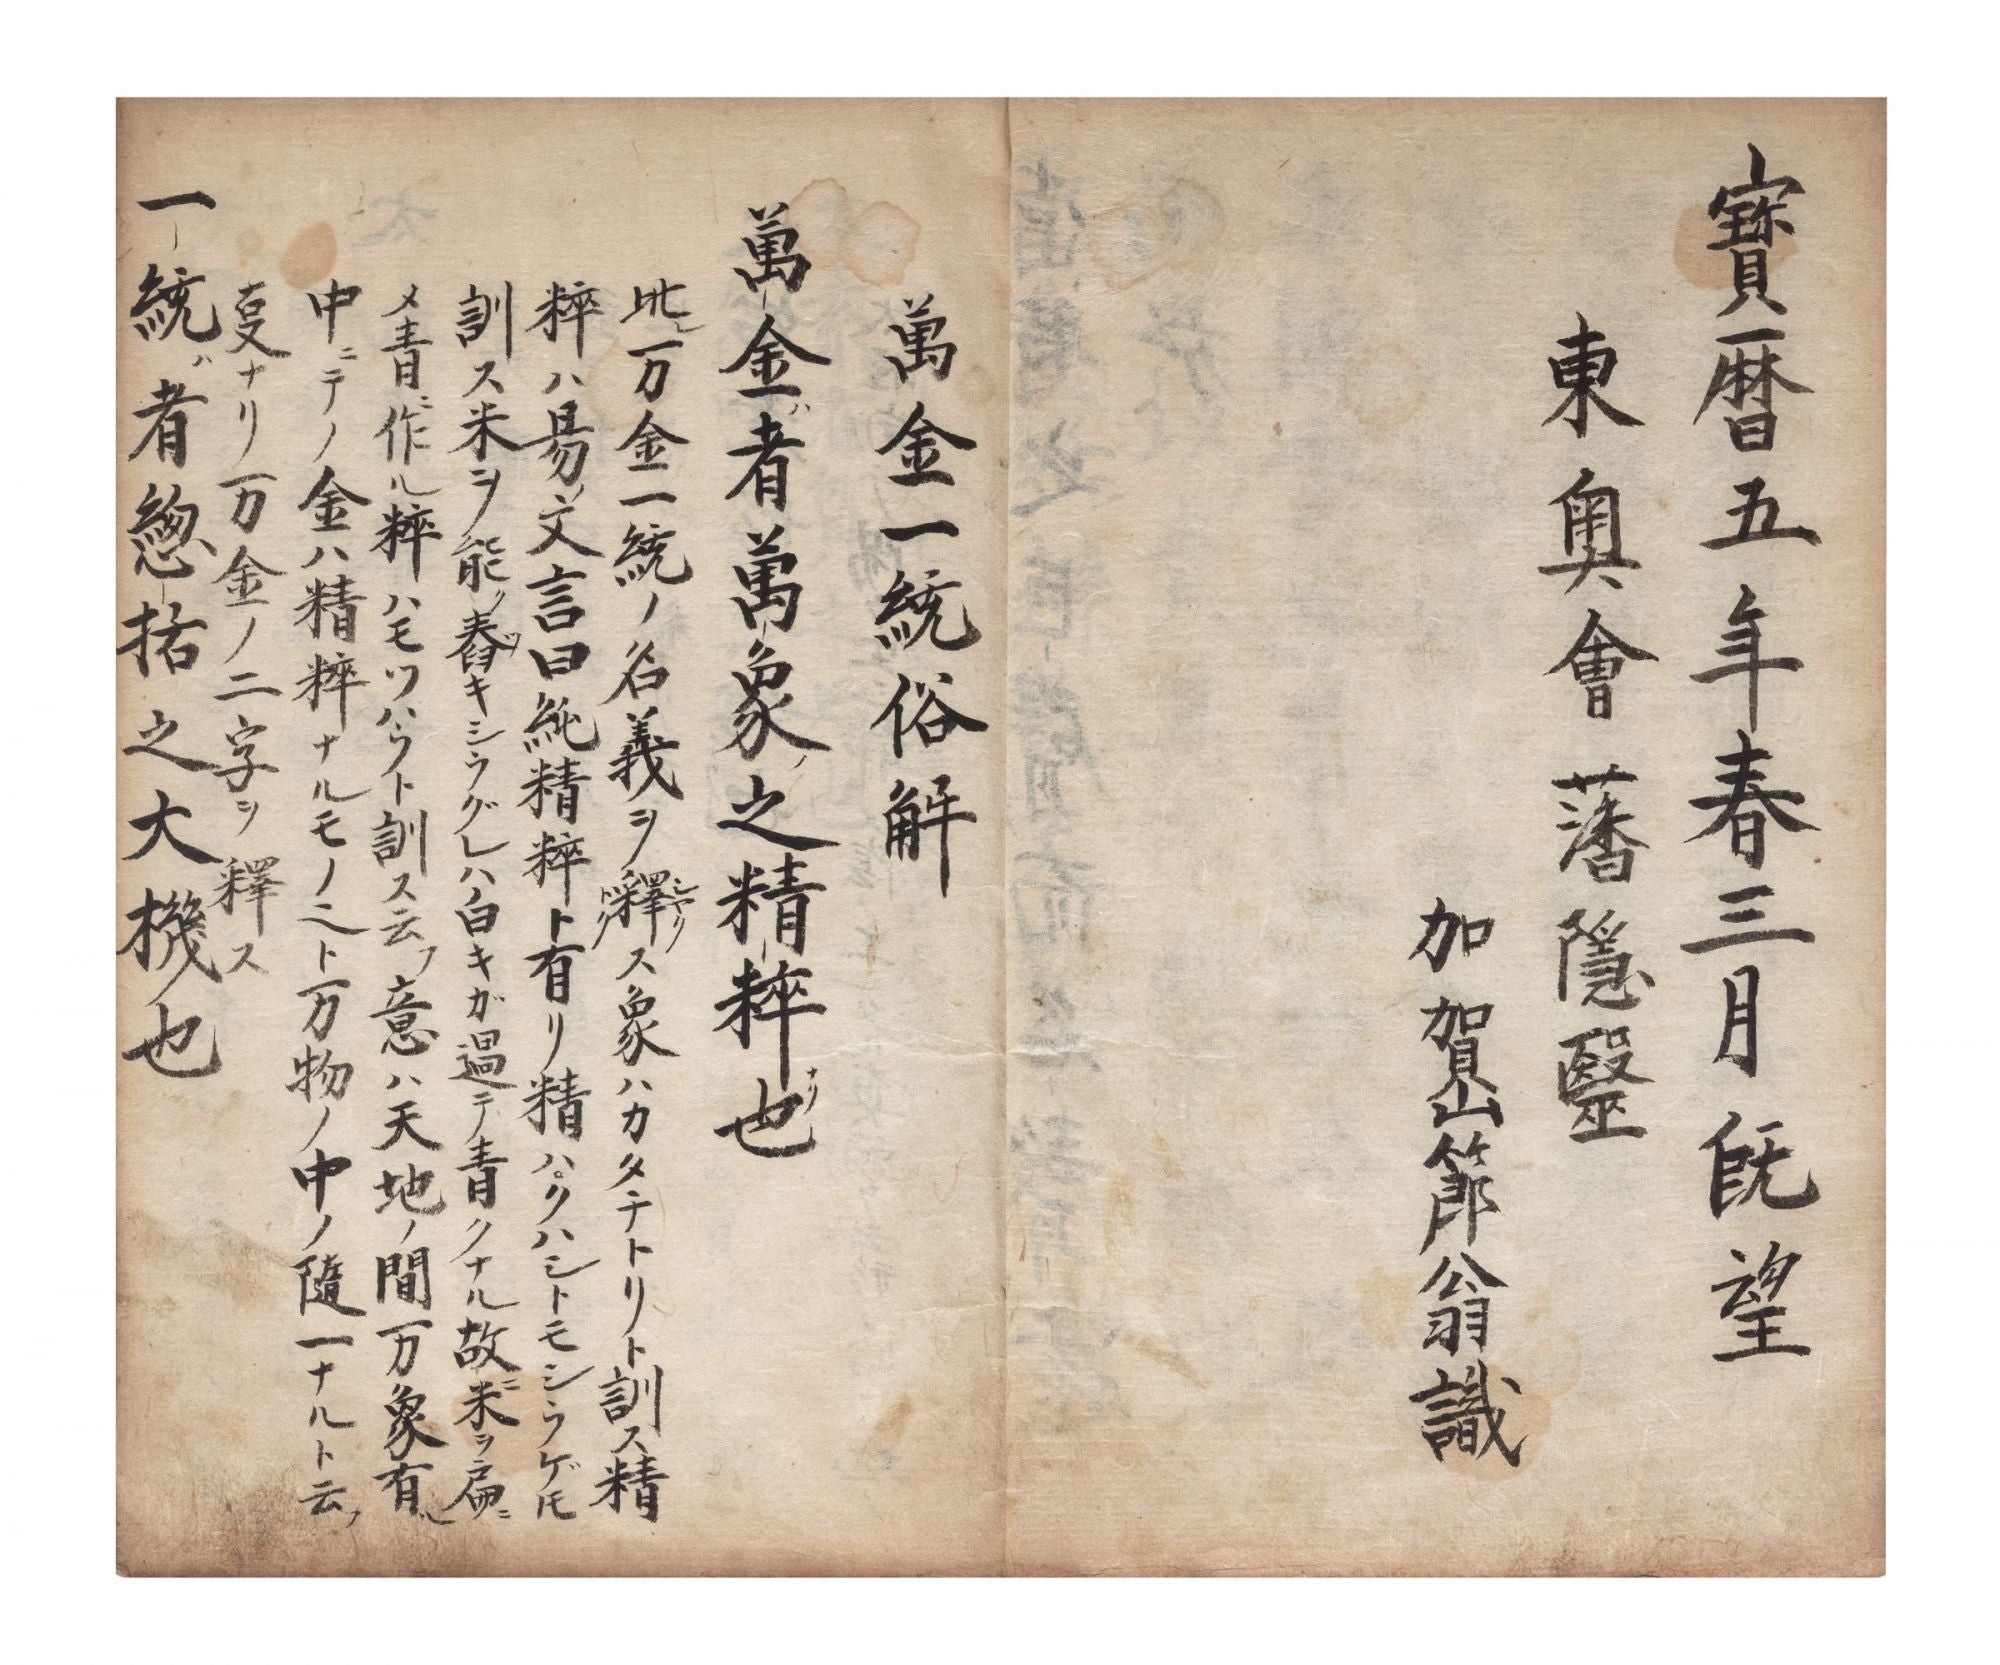 寶暦五年春三月既望
東奥會藩隠醫
加賀山節翁識
萬金一統俗解
萬金者ハ萬象之ノ精粹也ナリ
此レ万金一統ノ名義ヲ釋ス象ハカタチトリト訓ス精
粹ハ易ノ文言曰純精粹ト有リ精ハクハシトモシラゲトモ
訓ス米ヲ能ク舂キシラグレハ白キガ過テ青クナル故ニ米ヲ扁ニ
メ青ニ作ル粹ハモツハラト訓ス云フ意ハ天地ノ間万象有レ
中ニテノ金ハ精粹ナルモノニト万物ノ中ノ隨一ナルト云フ
㕝ナリ万金ノ二字ヲ釋ス
一統ハ者總括之大機也